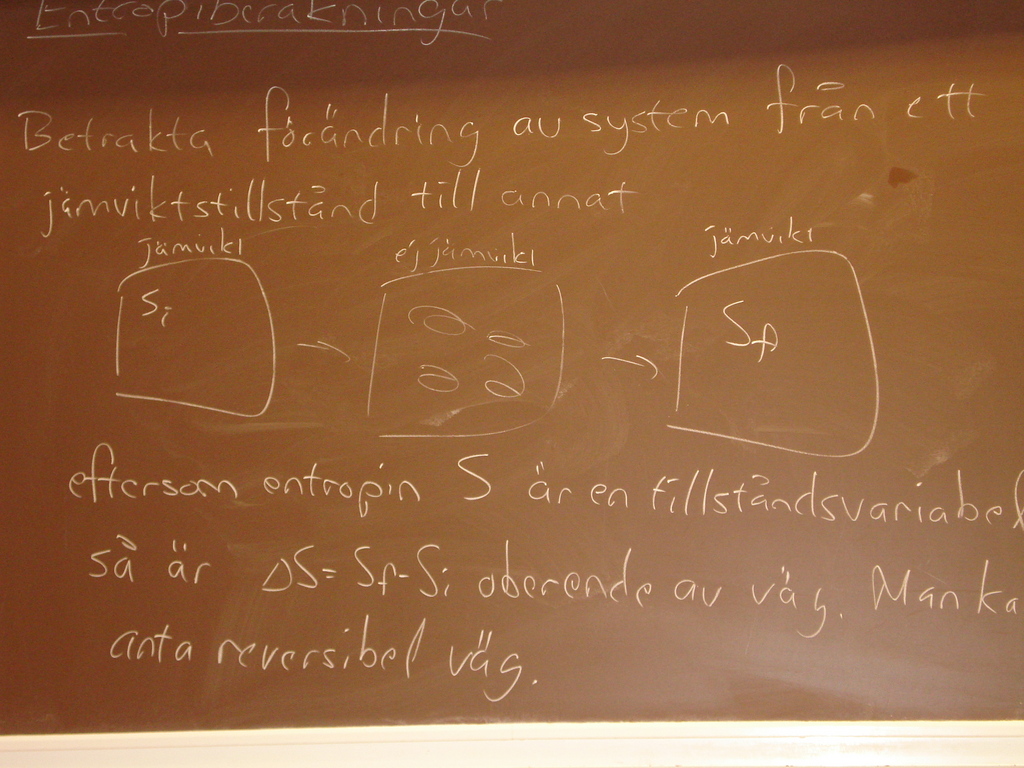 Entropiberäkningar
Betrakta förändring av system från ett
jämviktstillstånd till annat
jämvikt
ej jämvikt
jämvikt
Si
Sf
eftersom entropin S är en tillståndsvariabel
så är ΔS = Sf - Si oberoende av väg. Man ka
anta reversibel väg.